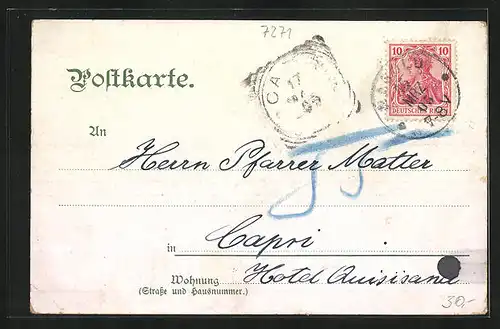 7271
10 10
DEUTSCHES REICH
CA
17
Postkarte.
An
Herrn Pfarrer Matter
in Capri
Wohnung Hotel Quisisana
(Straße und Hausnummer.)
30.-